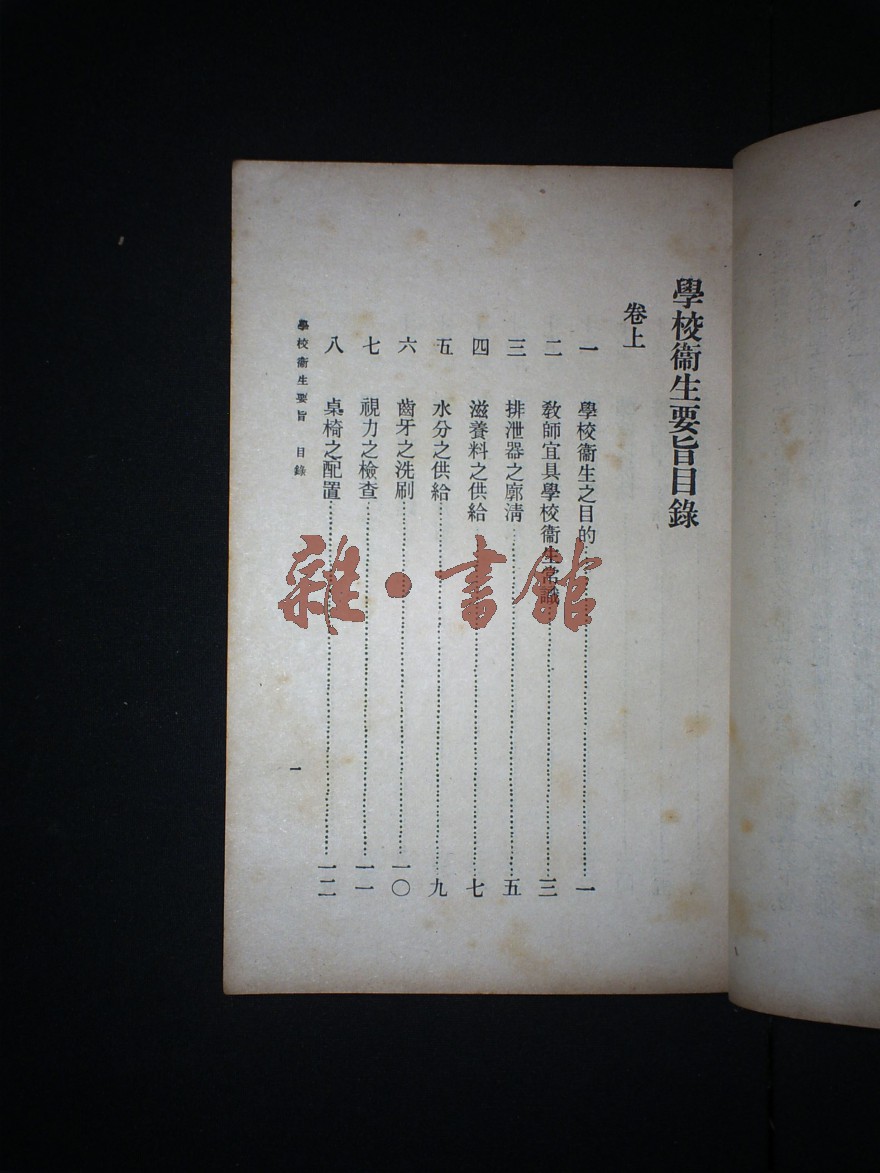 學校衞生要旨目錄
卷上
一 學校衞生之目的……一
二 教師宜具學校衞生常識……三
三 排泄器之廓清……五
四 滋養料之供給……七
五 水分之供給……九
六 齒牙之洗刷……一〇
七 視力之檢查……一一
八 桌椅之配置……一二
學校衞生要旨 目錄
一
雜·書館